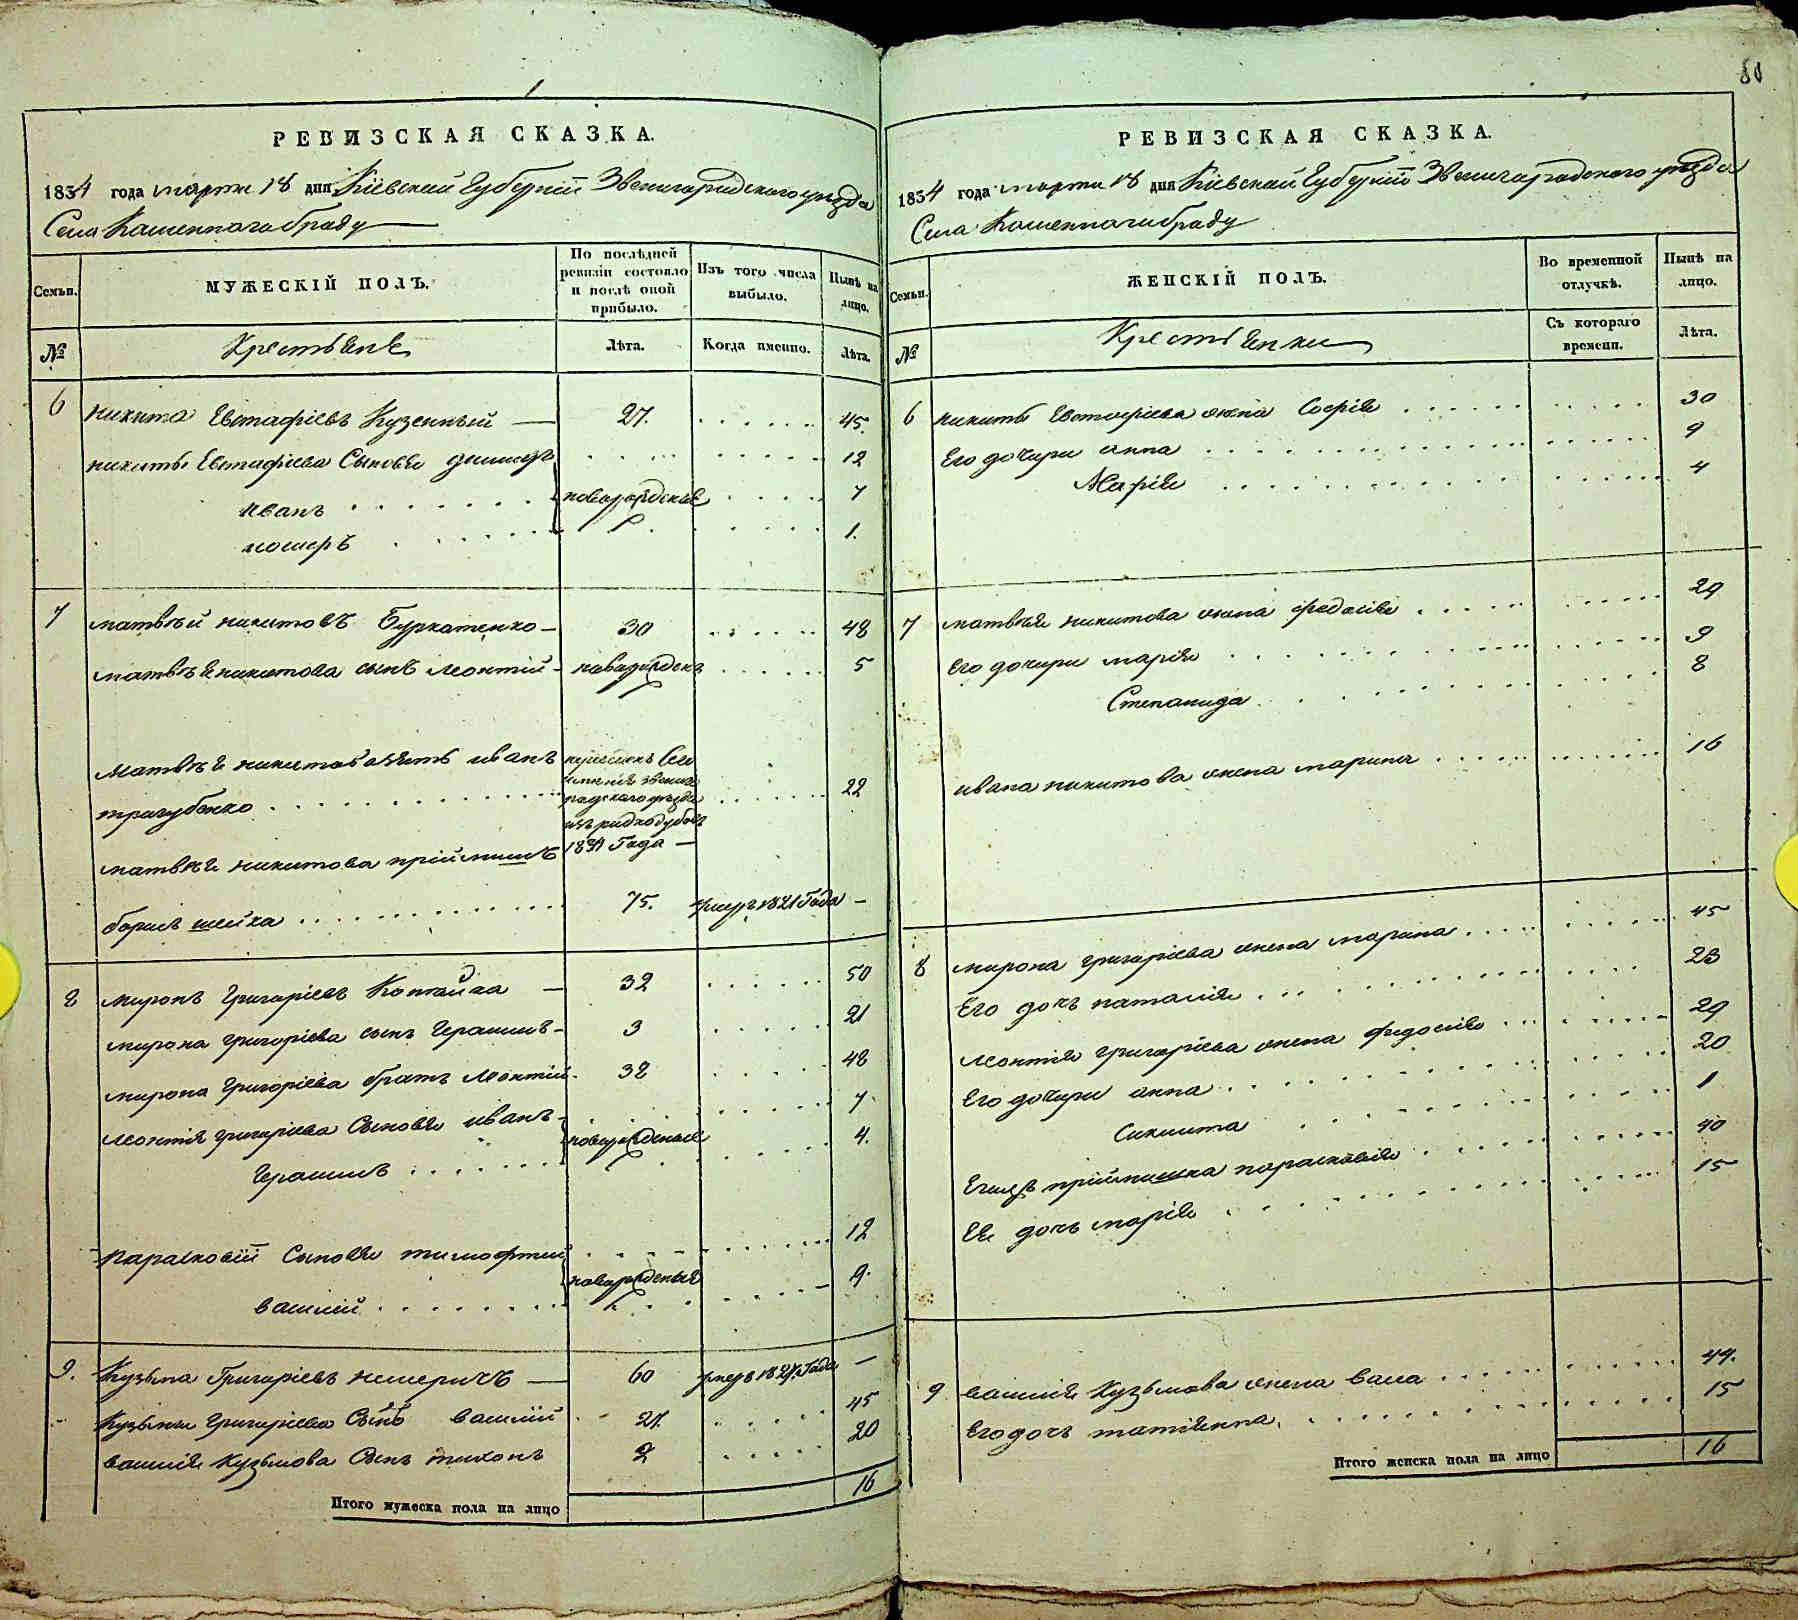 80
РЕВИЗСКАЯ СКАЗКА.
1834 года марта 18 дня Кіевской Губерніи Звенигородского уезда
Села Каменногоброду
Семьи.
МУЖЕСКІЙ ПОЛЪ.
По послѣдней ревизіи состояло и послѣ оной прибыло.
Изъ того числа выбыло.
Нынѣ на лицо.
№
Крестьяне
Лѣта.
Когда именно.
Лѣта.
6 никита Евстафіевъ Кузенный 27. 45.
никиты Евстафіева Сыновья 12
иванъ новорожденые 7
1.
7 матвѣй никитовъ Буркатенко 30 48
матвѣя никитова сынъ леонтій новорожденъ 5
Матвѣя никитова зять иванъ
трагубенко 22
1834 Года
матвѣя никитова пріймишъ
борисъ шейка 75. умеръ 1821 Года —
8 миронъ григоріевъ Коптайка 32 50
мирона григоріева сынъ Герасимъ 3 21
мирона григоріева братъ леонтій 32 48
леонтія григоріева Сыновья иванъ 7
Герасимъ новорожденые 4.
Парасковіи Сыновья тимофтей 12
василій новорожденые 9.
9. Кузьма Григоріевъ немеричъ 60 умеръ 1827. Года —
Кузьмы григоріева Сынъ василій 27. 45
василія Кузьмова Сынъ тихонъ 2 20
Итого мужеска пола на лицо 16
РЕВИЗСКАЯ СКАЗКА.
1834 года марта 18 дня Кіевской Губерніи Звенигородского уезда
Села Каменногоброду
Семьи.
ЖЕНСКІЙ ПОЛЪ.
Во временной отлучкѣ.
Нынѣ на лицо.
№
Крестьянки
Съ котораго времени.
Лѣта.
6 никиты Евстафіева жена Софія 30
Его дочири анна 9
Марія 4
7 матвѣя никитова жена федосія 29
Его дочири марія 9
Степанида 8
ивана никитова жена марина 16
8 мирона григоріева жена марина 45
Его дочь наталія 23
леонтія григоріева жена федосія 29
Его дочири анна 20
1
пріймишка парасковія 40
Ея дочь марія 15
9 василія Кузьмова жена васа 44.
Его дочь татіянна 15
Итого женска пола на лицо 16